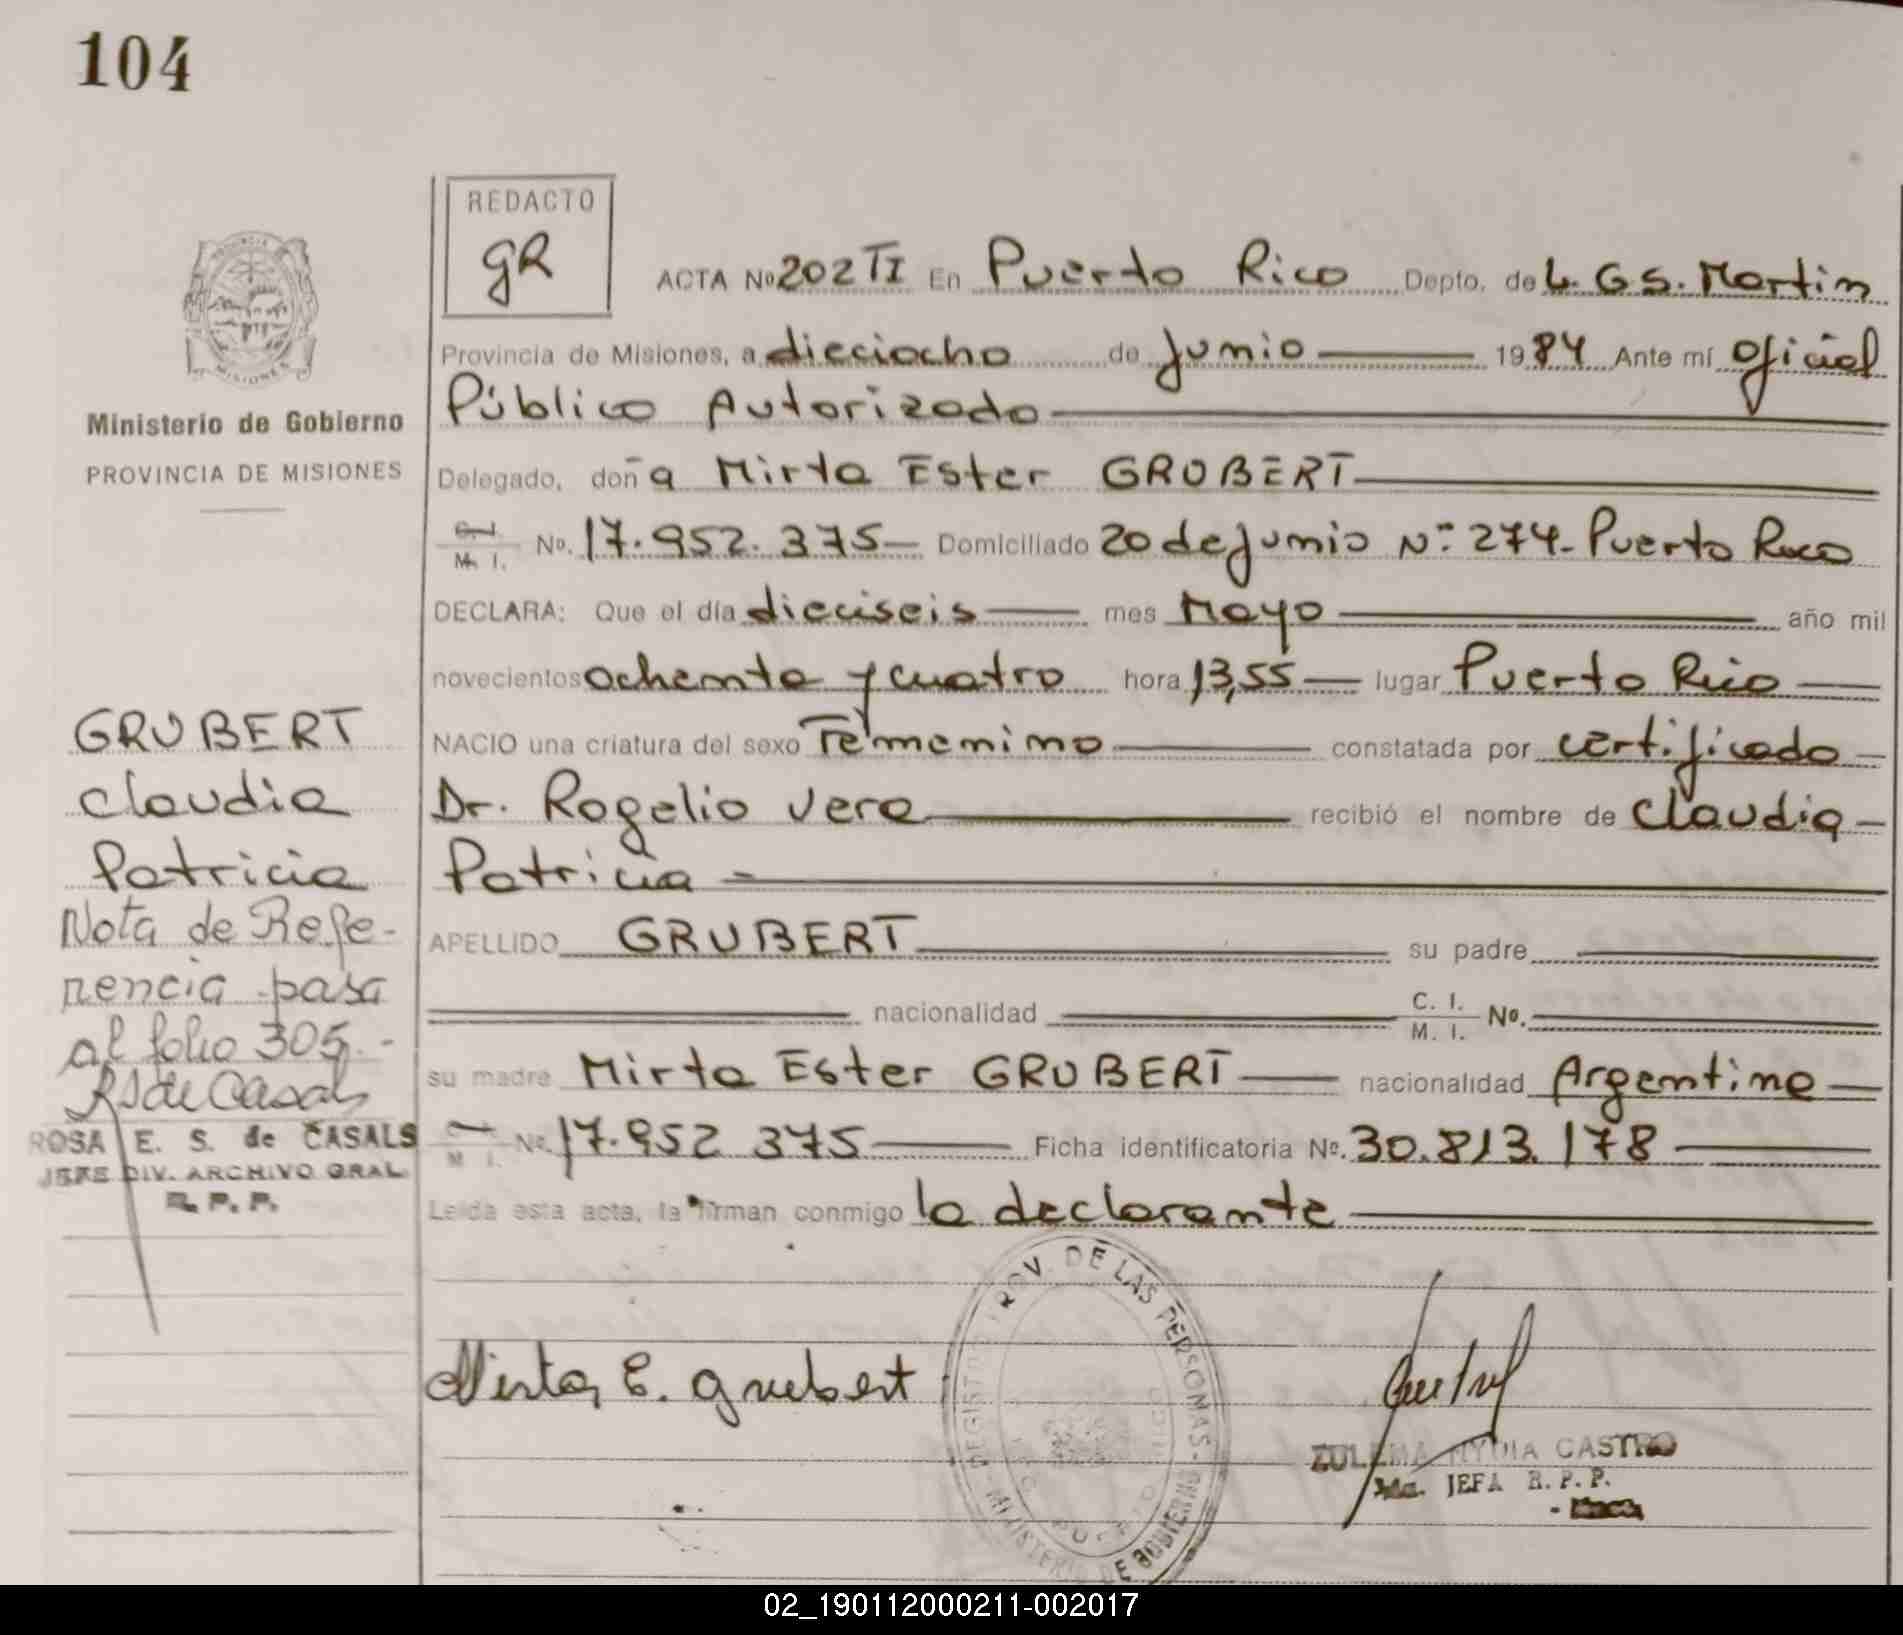 104
REDACTO
gR
ACTA Nº 202 TI En Puerto Rico Depto. de L. G S. Martin
Provincia de Misiones, a dieciocho de Junio 1984 Ante mí Oficial
Público Autorizado
Ministerio de Gobierno
PROVINCIA DE MISIONES
Delegado, doña Mirta Ester GRUBERT
C. I. M. I. No. 17.952.375 Domiciliado 20 de Junio Nº 274- Puerto Rico
DECLARA: Que el día dieciseis mes Mayo año mil
novecientos ochenta y cuatro hora 13,55 lugar Puerto Rico
NACIO una criatura del sexo Femenino constatada por certificado
Dr. Rogelio Vera recibió el nombre de Claudia
Patricia
APELLIDO GRUBERT su padre
nacionalidad C. I. M. I. No.
su madre Mirta Ester GRUBERT nacionalidad Argentina
M. I. No. 17.952 375 Ficha identificatoria Nº. 30.813.178
Leída esta acta, la firman conmigo la declarante
GRUBERT
Claudia
Patricia
Nota de Refe-
rencia pasa
al folio 305.-
RS de Casals
ROSA E. S. de CASALS
JEFE DIV. ARCHIVO GRAL
R. P. P.
Mirta E. Grubert
REGISTRO PROV. DE LAS PERSONAS - MINISTERIO DE GOBIERNO
PUERTO RICO
ZULEMA NYDIA CASTRO
JEFA R. P. P.
02_190112000211-002017